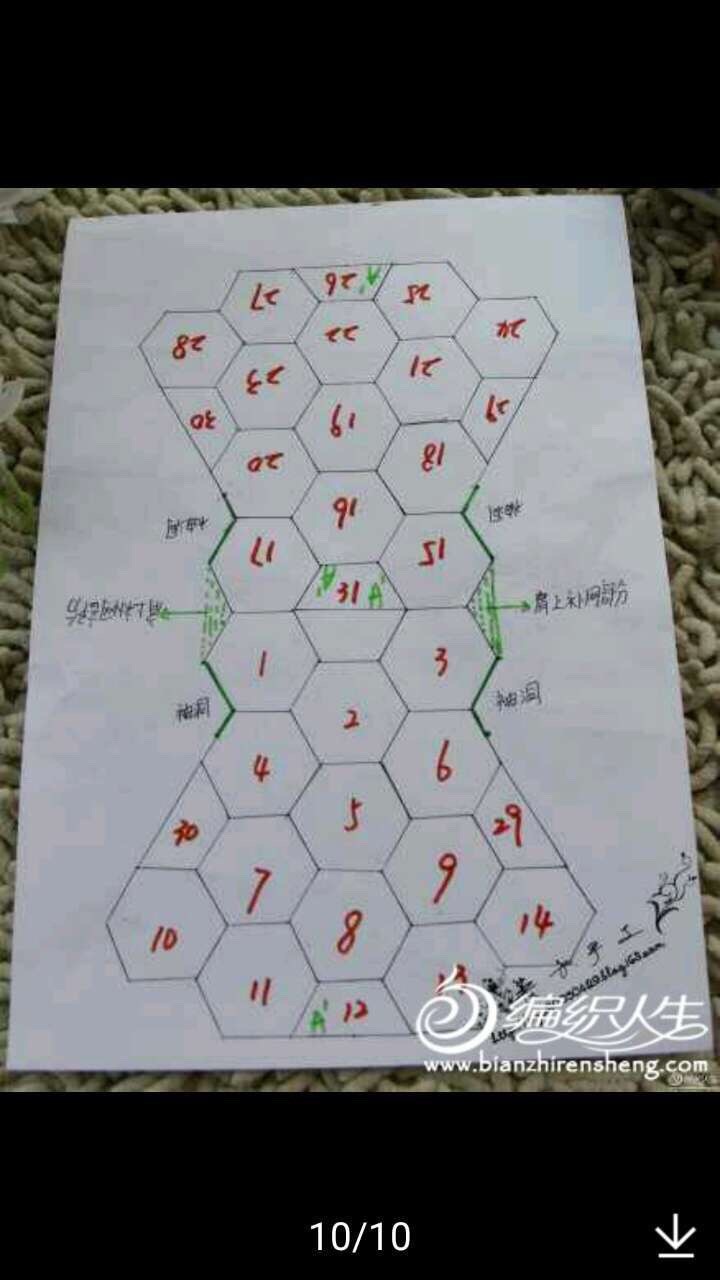 26 A'
27 25
28 22 24
23 21
30 19 29
20 18
袖洞 16 袖洞
17 15
A' 31 A'
肩上补网部分 肩上补网部分
1 3
袖洞 2 袖洞
4 6
30 5 29
7 9
10 8 14
11 13
A' 12
编织人生
www.bianzhirensheng.com
10/10